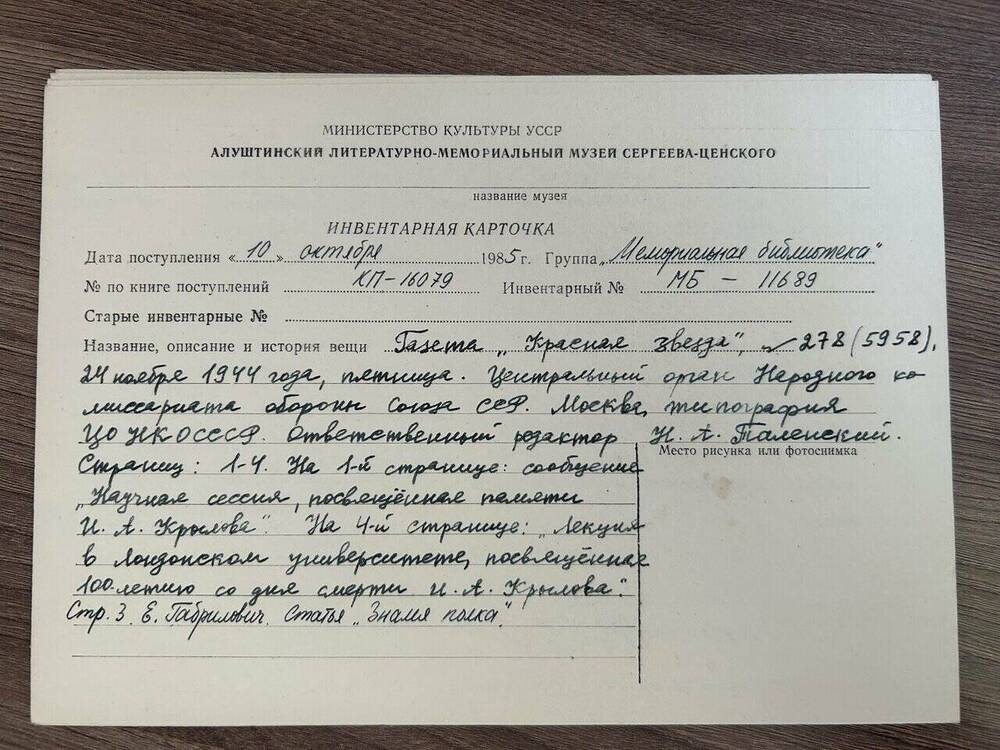 МИНИСТЕРСТВО КУЛЬТУРЫ УССР
АЛУШТИНСКИЙ ЛИТЕРАТУРНО-МЕМОРИАЛЬНЫЙ МУЗЕЙ СЕРГЕЕВА-ЦЕНСКОГО
название музея
ИНВЕНТАРНАЯ КАРТОЧКА
Дата поступления «10» октября 1985 г. Группа „Мемориальная библиотека“
№ по книге поступлений КП-16079 Инвентарный № МБ - 11689
Старые инвентарные №
Название, описание и история вещи Газета „Красная звезда“, № 278 (5958),
24 ноября 1944 года, пятница. Центральный орган Народного ко-
миссариата обороны Союза ССР. Москва, типография
ЦО НКО СССР. Ответственный редактор Н. А. Таленский.
Место рисунка или фотоснимка
Страниц: 1-4. На 1-й странице: сообщение
„Научная сессия, посвящённая памяти
И. А. Крылова“. На 4-й странице: „Лекция
в Лондонском университете, посвящённая
100-летию со дня смерти И. А. Крылова“.
Стр. 3. Е. Габрилович. Статья „Знамя полка“.